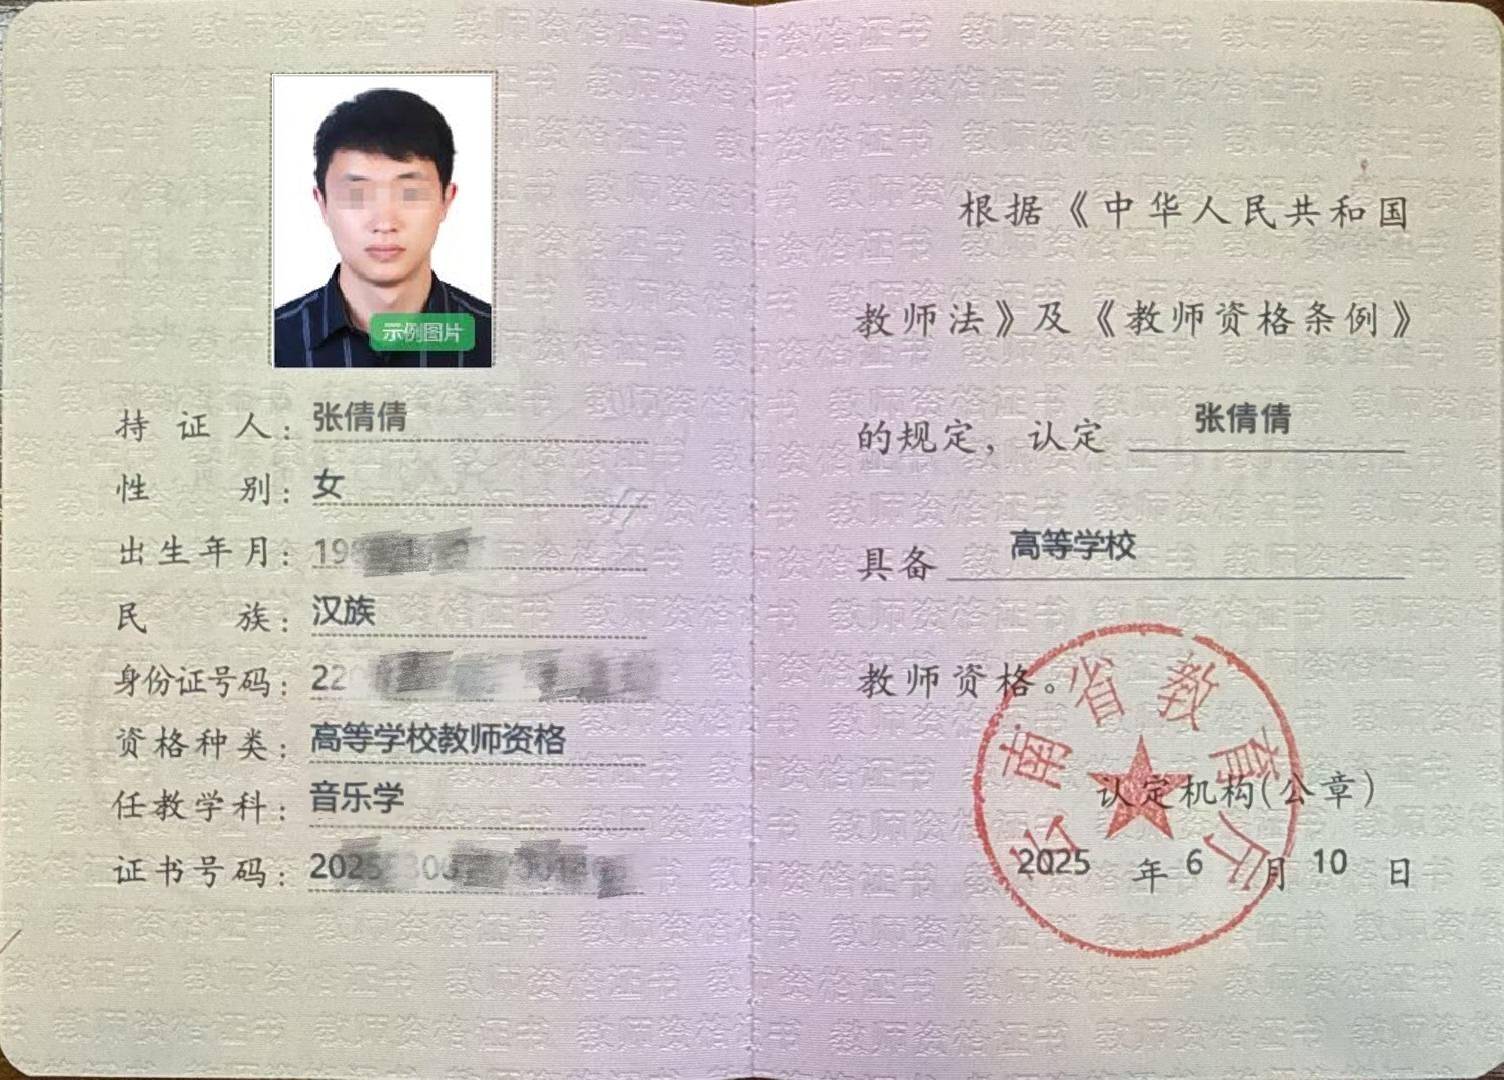 示例图片
持证人：张倩倩
性别：女
出生年月：19
民族：汉族
身份证号码：22
资格种类：高等学校教师资格
任教学科：音乐学
证书号码：2025
根据《中华人民共和国
教师法》及《教师资格条例》
的规定，认定 张倩倩
具备 高等学校
教师资格。
云南省教育厅
认定机构(公章)
2025 年 6 月 10 日